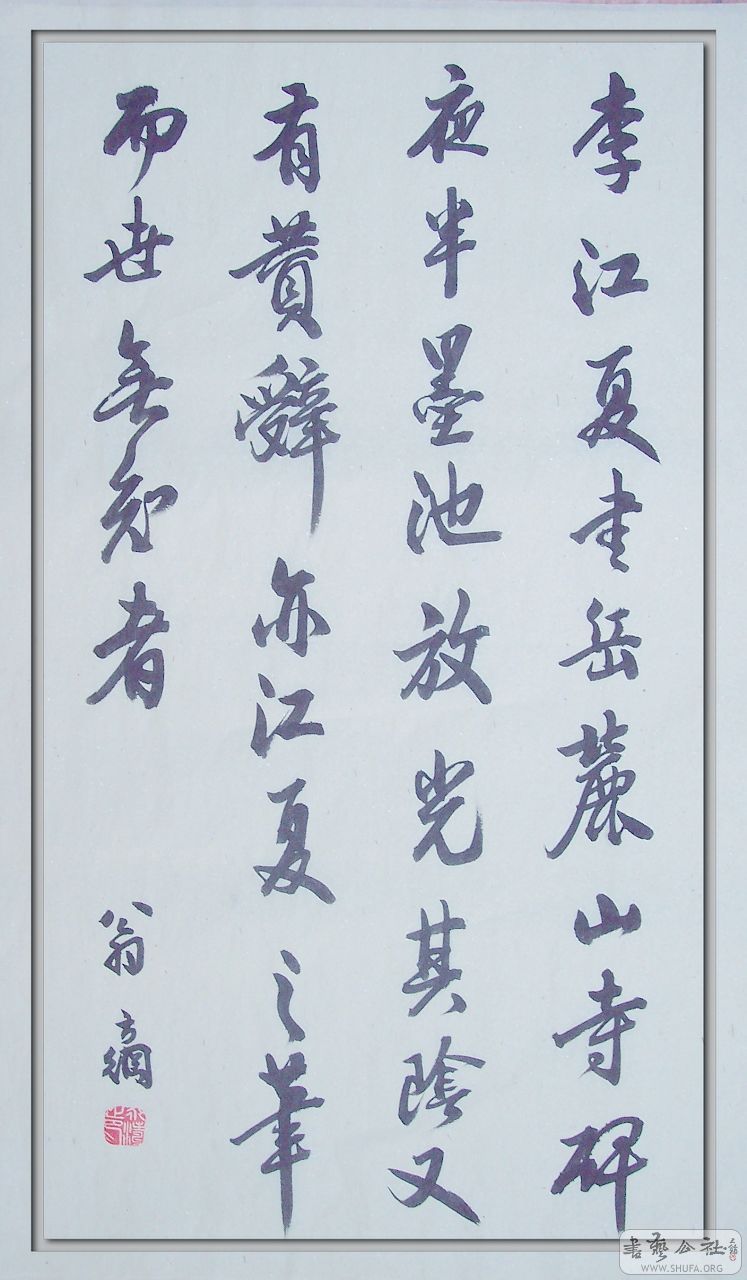 李江夏書岳麓山寺碑
夜半墨池放光其陰又
有贊辭亦江夏之筆
而世無知者
翁方綱
書藝公社
WWW.SHUFA.ORG